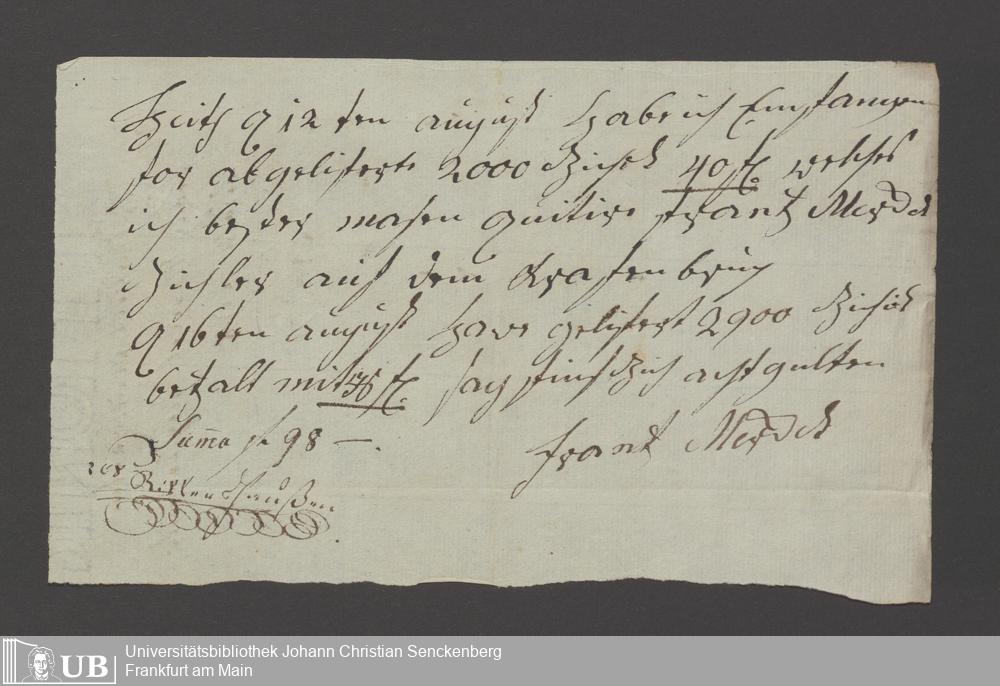 Heith d 12 ten august hab ich Emfangen
for abgeliferte 2000 Zichel 40 fl. welches
ich bester masen quitire frantz
Zichler auf dem
d 16 ten august habe gelifert 2900 Zichel
betzalt mit 58 fl. sag finf Zich acht gulten
Summa f 98 —
frantz
UB
Universitätsbibliothek Johann Christian Senckenberg
Frankfurt am Main